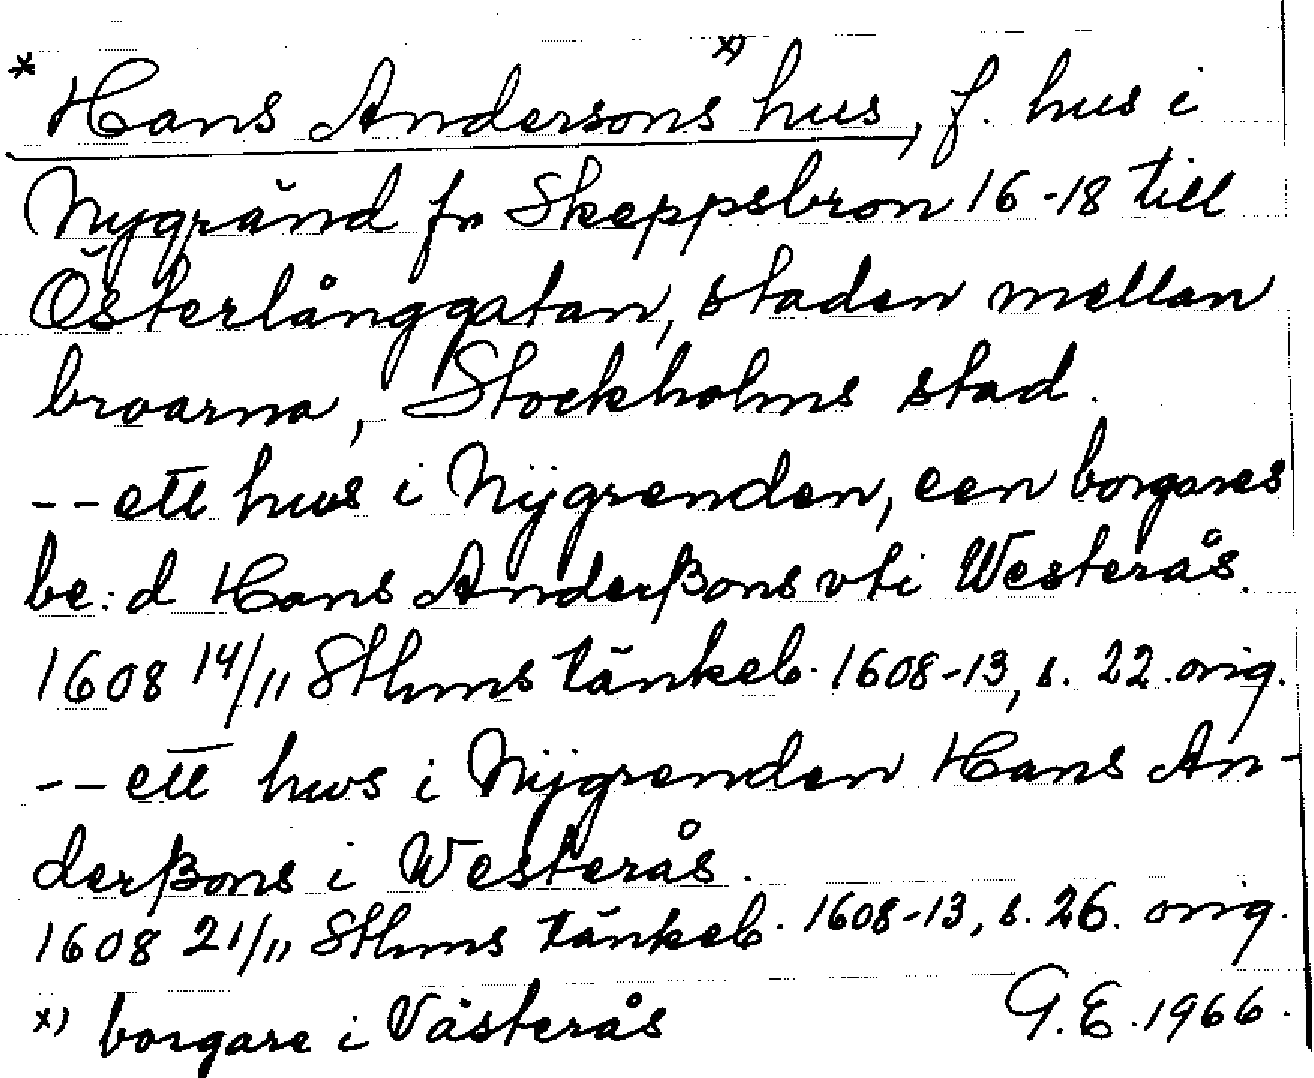 * Hans Andersons x) hus, f. hus i
Nygränd fr Skeppsbron 16-18 till
Österlånggatan, staden mellan
broarna, Stockholms stad.
-- ett hws i Nÿgrenden, een borgares
be:d Hans Anderßons vti Westerås.
1608 14/11 Sthms tänkeb. 1608-13, s. 22. orig.
-- ett hws i Nÿgrenden Hans An-
derßons i Westerås.
1608 21/11 Sthms tänkeb. 1608-13, s. 26. orig.
x) borgare i Västerås G.E. 1966.